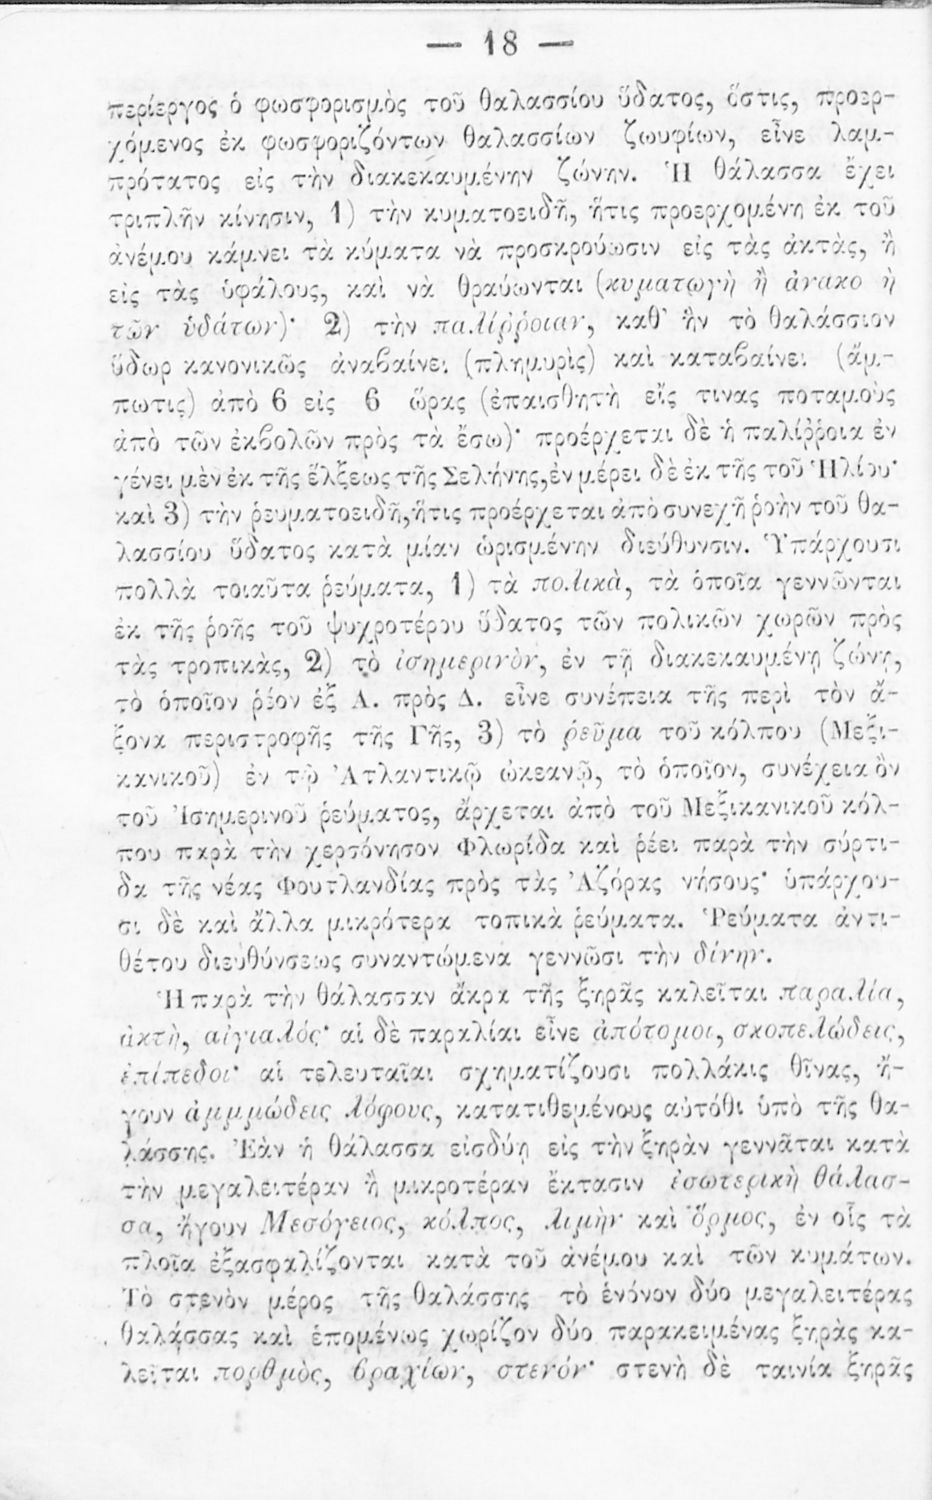 — 18 —
περίεργος ὁ φωσφορισμὸς τοῦ θαλασσίου ὕδατος, ὅστις, προερ-
χόμενος ἐκ φωσφοριζόντων θαλασσίων ζωυφίων, εἶνε λαμ-
πρότατος εἰς τὴν διακεκαυμένην ζώνην. Ἡ θάλασσα ἔχει
τριπλῆν κίνησιν, 1) τὴν κυματοειδῆ, ἥτις προερχομένη ἐκ τοῦ
ἀνέμου κάμνει τὰ κύματα νὰ προσκρούωσιν εἰς τὰς ἀκτὰς, ἢ
εἰς τὰς ὑφάλους, καὶ νὰ θραύωνται (κυματωγὴ ἢ ἀνακο ὴ
τῶν ὑδάτων)· 2) τὴν παλίῤῥοιαν, καθ' ἣν τὸ θαλάσσιον
ὕδωρ κανονικῶς ἀναβαίνει (πλημυρὶς) καὶ καταβαίνει (ἄμ-
πωτις) ἀπὸ 6 εἰς 6 ὥρας (ἐπαισθητὴ εἴς τινας ποταμοὺς
ἀπὸ τῶν ἐκβολῶν πρὸς τὰ ἔσω)· προέρχεται δὲ ἡ παλίῤῥοια ἐν
γένει μὲν ἐκ τῆς ἕλξεως τῆς Σελήνης, ἐν μέρει δὲ ἐκ τῆς τοῦ Ἡλίου·
καὶ 3) τὴν ῥευματοειδῆ, ἥτις προέρχεται ἀπὸ συνεχῆ ῥοὴν τοῦ θα-
λασσίου ὕδατος κατὰ μίαν ὡρισμένην διεύθυνσιν. Ὑπάρχουσι
πολλὰ τοιαῦτα ῥεύματα, 1) τὰ πολικὰ, τὰ ὁποῖα γεννῶνται
ἐκ τῆς ῥοῆς τοῦ ψυχροτέρου ὕδατος τῶν πολικῶν χωρῶν πρὸς
τὰς τροπικὰς, 2) τὸ ἰσημερινὸν, ἐν τῇ διακεκαυμένῃ ζώνῃ,
τὸ ὁποῖον ῥέον ἐξ Α. πρὸς Δ. εἶνε συνέπεια τῆς περὶ τὸν ἄ-
ξονα περιστροφῆς τῆς Γῆς, 3) τὸ ῥεῦμα τοῦ κόλπου (Μεξι-
κανικοῦ) ἐν τῷ Ἀτλαντικῷ ὠκεανῷ, τὸ ὁποῖον, συνέχεια ὂν
τοῦ Ἰσημερινοῦ ῥεύματος, ἄρχεται ἀπὸ τοῦ Μεξικανικοῦ κόλ-
που παρὰ τὴν χερσόνησον Φλωρίδα καὶ ῥέει παρὰ τὴν σύρτι-
δα τῆς νέας Φουτλανδίας πρὸς τὰς Ἀζόρας νήσους· ὑπάρχου-
σι δὲ καὶ ἄλλα μικρότερα τοπικὰ ῥεύματα. Ῥεύματα ἀντι-
θέτου διευθύνσεως συναντώμενα γεννῶσι τὴν δίνην.
Ἡ παρὰ τὴν θάλασσαν ἄκρα τῆς ξηρᾶς καλεῖται παραλία,
ἀκτὴ, αἰγιαλός· αἱ δὲ παραλίαι εἶνε ἀπότομοι, σκοπελώδεις,
ἐπίπεδοι· αἱ τελευταῖαι σχηματίζουσι πολλάκις θῖνας, ἤ-
γουν ἀμμμώδεις λόφους, κατατιθεμένους αὐτόθι ὑπὸ τῆς θα-
λάσσης. Ἐὰν ἡ θάλασσα εἰσδύῃ εἰς τὴν ξηρὰν γεννᾶται κατὰ
τὴν μεγαλειτέραν ἢ μικροτέραν ἔκτασιν ἐσωτερικὴ θάλασ-
σα, ἤγουν Μεσόγειος, κόλπος, λιμὴν καὶ ὅρμος, ἐν οἷς τὰ
πλοῖα ἐξασφαλίζονται κατὰ τοῦ ἀνέμου καὶ τῶν κυμάτων.
Τὸ στενὸν μέρος τῆς θαλάσσης τὸ ἑνόνον δύο μεγαλειτέρας
θαλάσσας καὶ ἑπομένως χωρίζον δύο παρακειμένας ξηρὰς κα-
λεῖται πορθμὸς, βραχίων, στενόν· στενὴ δὲ ταινία ξηρᾶς